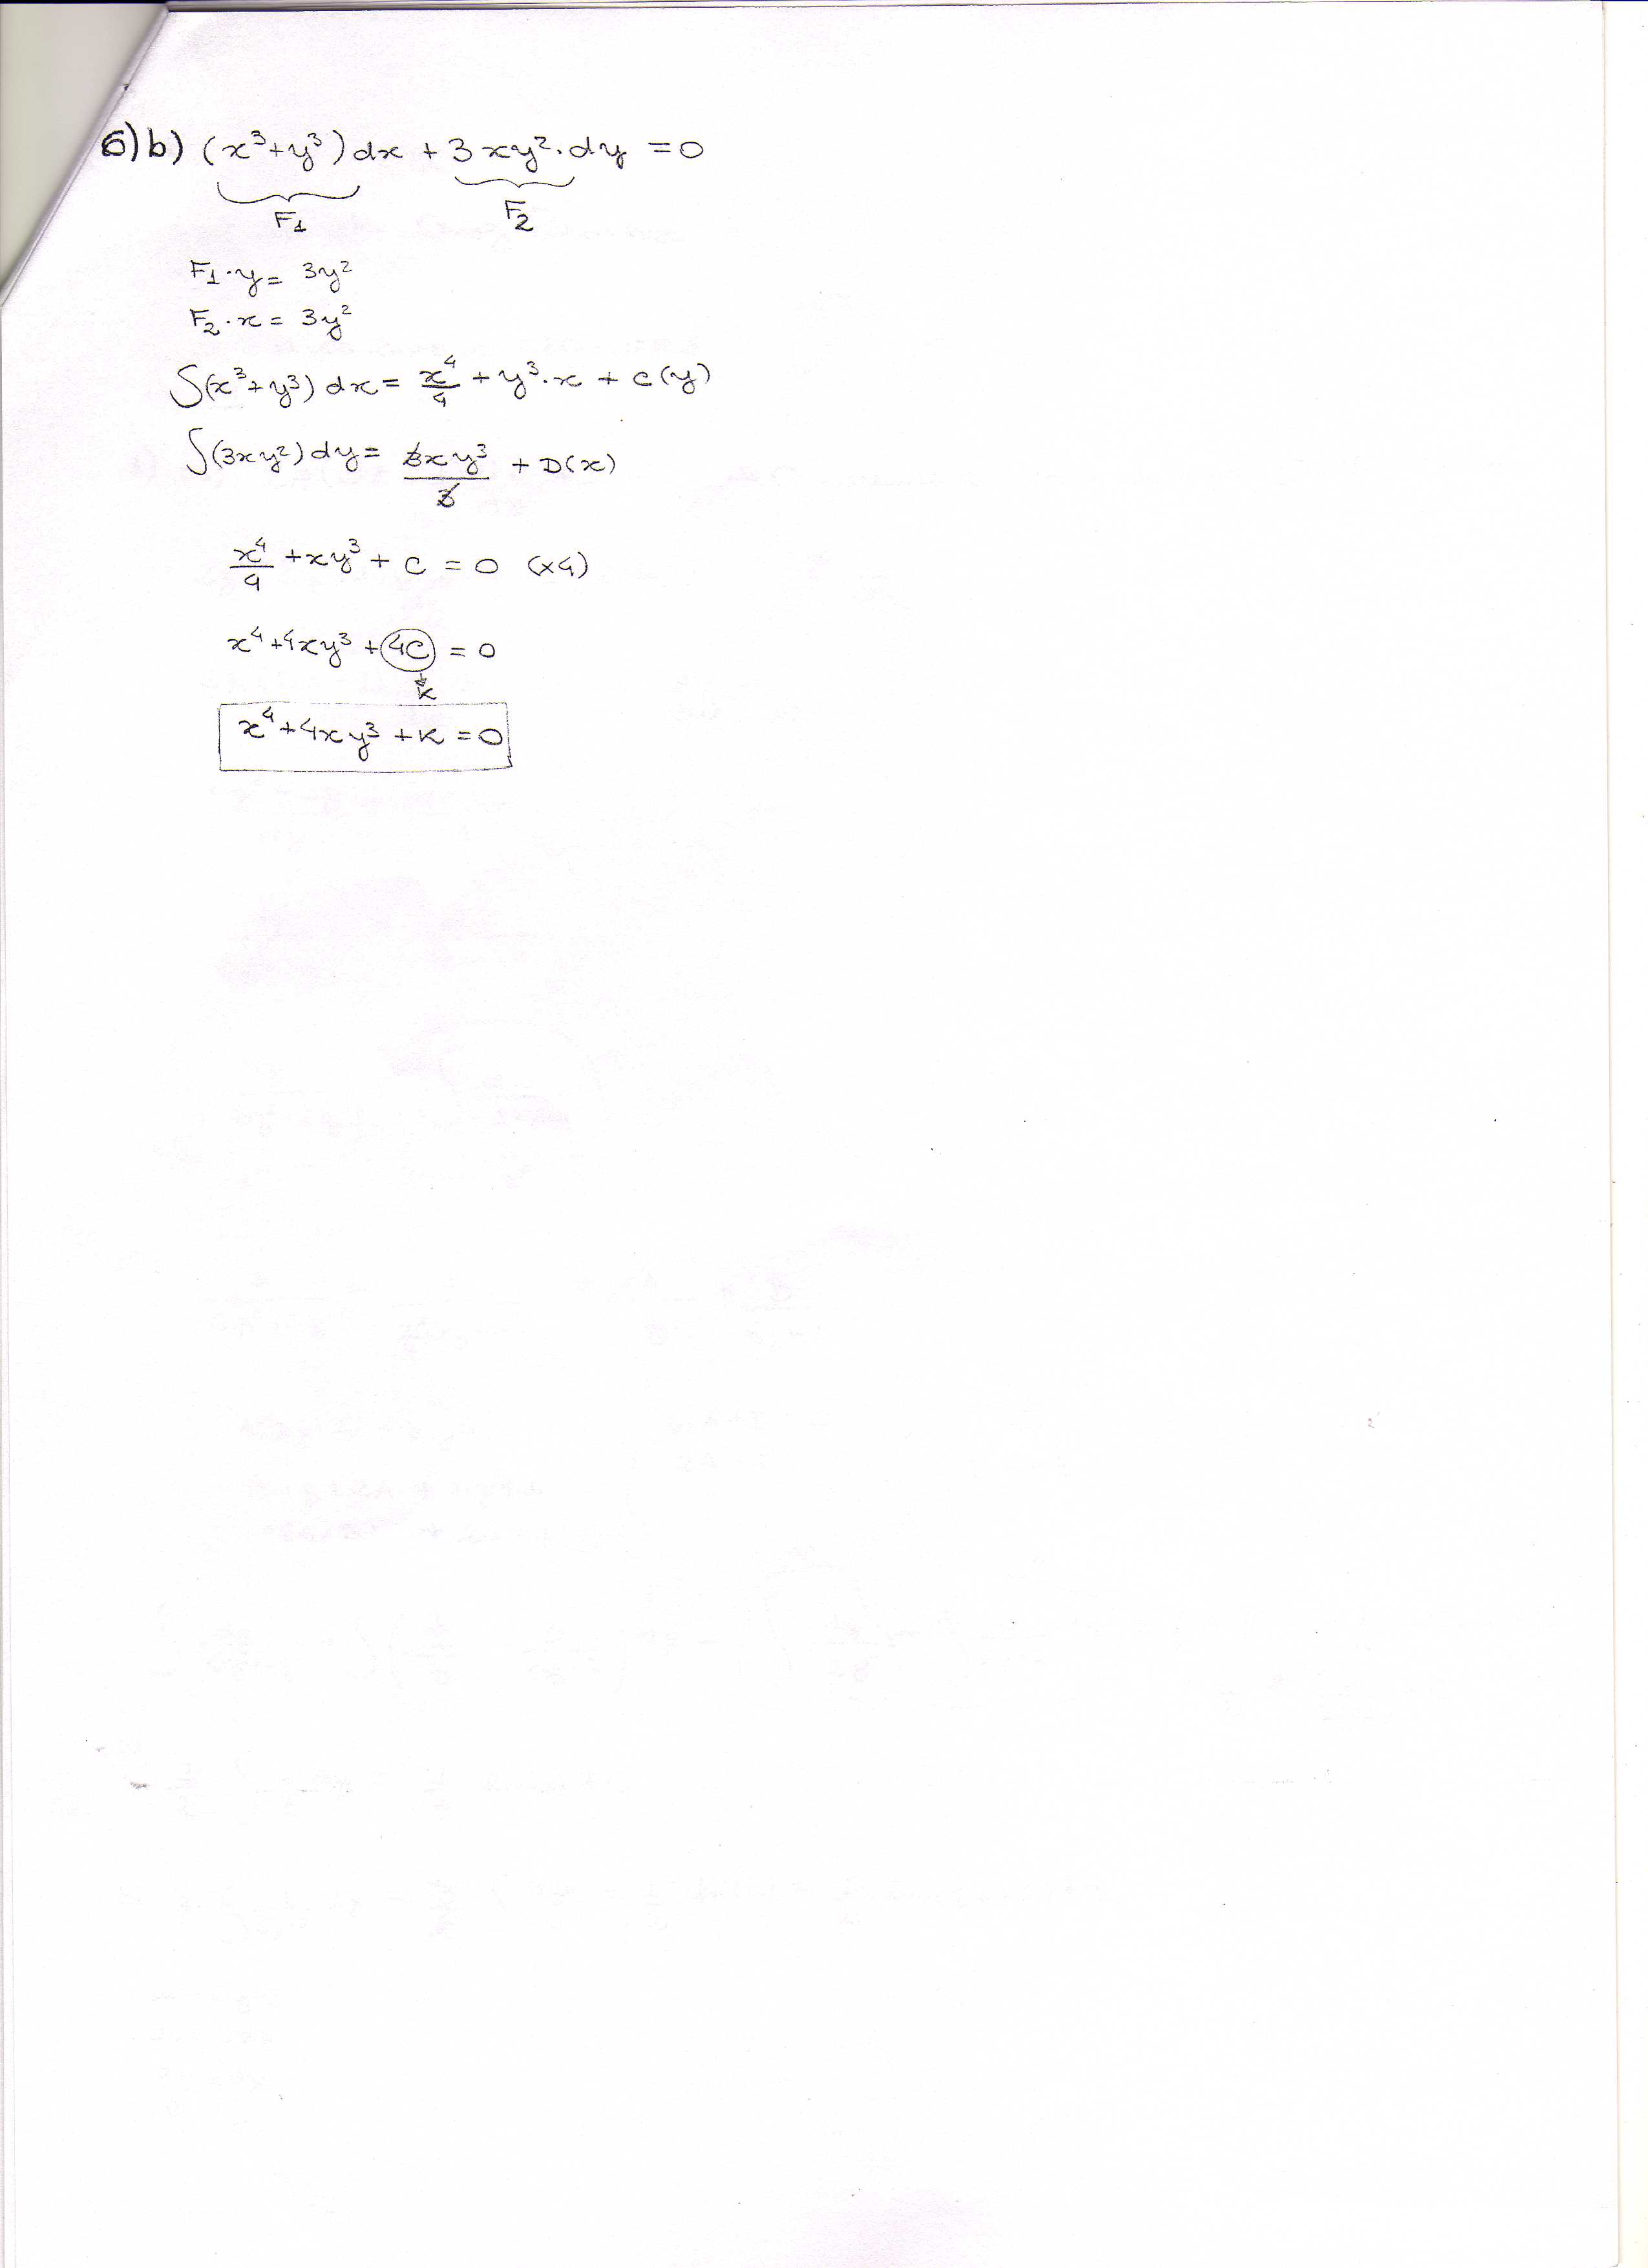 6)b) (x³+y³)dx + 3xy²·dy = 0
F1 F2
F1·y = 3y²
F2·x = 3y²
∫(x³+y³) dx = x⁴/4 + y³·x + c(y)
∫(3xy²) dy = 3xy³/3 + D(x)
x⁴/4 + xy³ + C = 0 (x4)
x⁴+4xy³+4C = 0
K
x⁴+4xy³+K=0